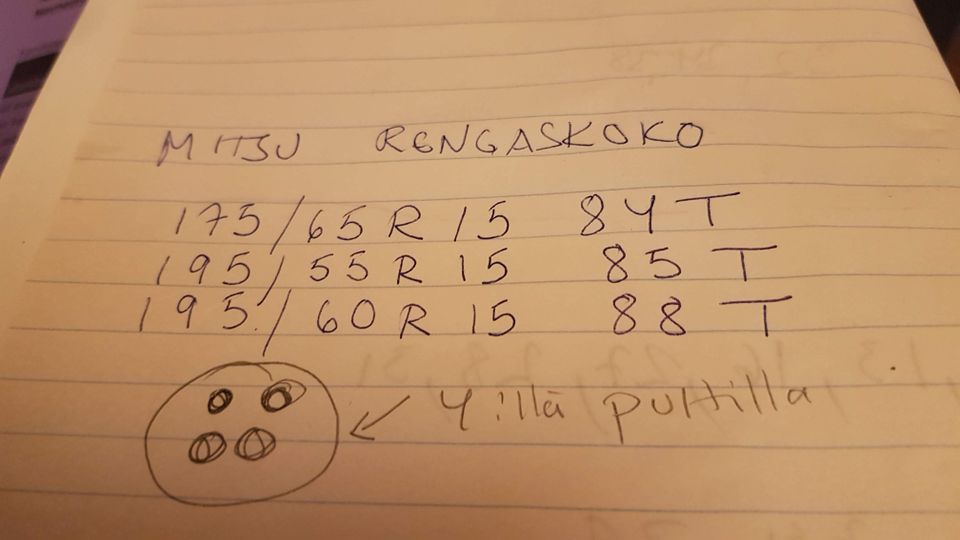 MITSU RENGASKOKO
175/65 R 15 84 T
195/55 R 15 85 T
195/60 R 15 88 T
4:llä pultilla